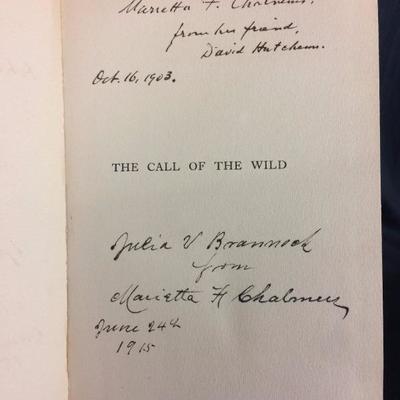 Marietta F. Chalmers,
from his friend,
David Hutcheon.
Oct. 16, 1903.
THE CALL OF THE WILD
Julia V Brannock
from
Marietta H Chalmers
June 24th
1915